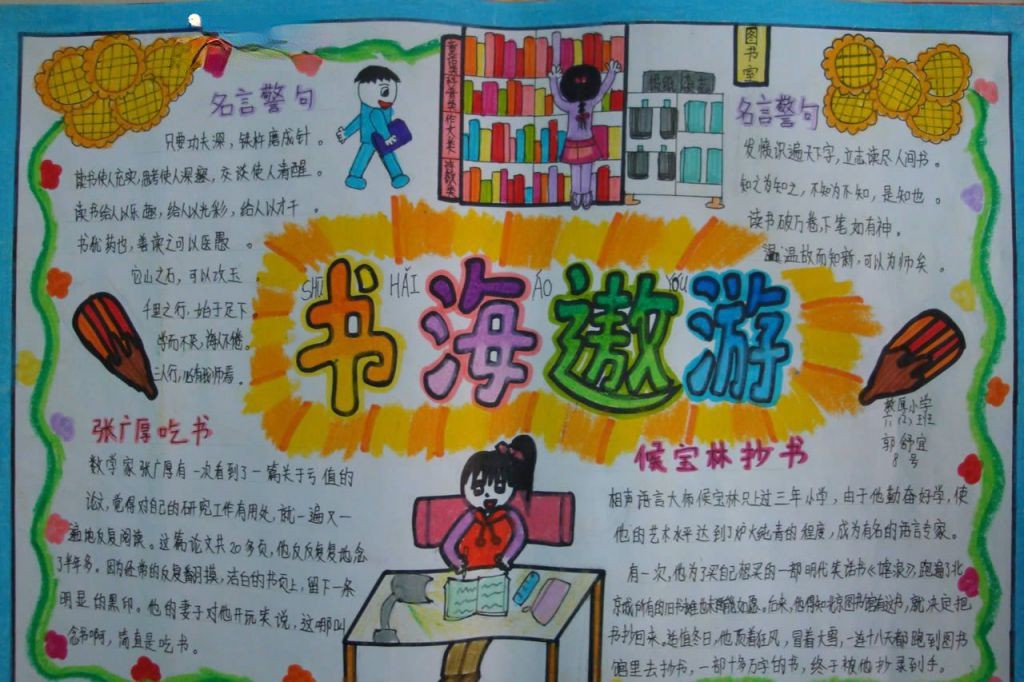 名言警句
只要功夫深，铁杵磨成针。
读书使人充实，思考使人深邃，交谈使人清醒。
读书给人以乐趣，给人以光彩，给人以才干。
书犹药也，善读之可以医愚。
它山之石，可以攻玉
千里之行，始于足下
学而不厌，诲人不倦。
三人行，必有我师焉。
童话类
科普类
作文类
连数类
图书室
名言警句
发愤识遍天下字，立志读尽人间书。
知之为知之，不知为不知，是知也。
读书破万卷，下笔如有神。
温故而知新，可以为师矣。
SHŪ HǍI ÁO YÓU
书海遨游
小学
六（2）班
郭舒宜
8号
张广厚吃书
数学家张广厚有一次看到了一篇关于亏值的
论文，觉得对自己的研究工作有用处，就一遍又一
遍地反复阅读。这篇论文共20多页，他反反复复地念
了半年多。因为经常的反复翻摸，洁白的书页上，留下一条
明显的黑印。他的妻子对他开玩笑说，这哪叫
念书啊，简直是吃书。
侯宝林抄书
相声语言大师侯宝林只上过三年小学，由于他勤奋好学，使
他的艺术水平达到了炉火纯青的程度，成为有名的语言专家。
有一次，他为了买自己想买的一部明代笑话书《谑浪》，跑遍了北
京城所有的旧书摊也未能如愿。后来，他得知北京图书馆有这书，就决定把
书抄回来。适值冬日，他顶着狂风，冒着大雪，一连十八天都跑到图书
馆里去抄书，一部十多万字的书，终于被他抄录到手。